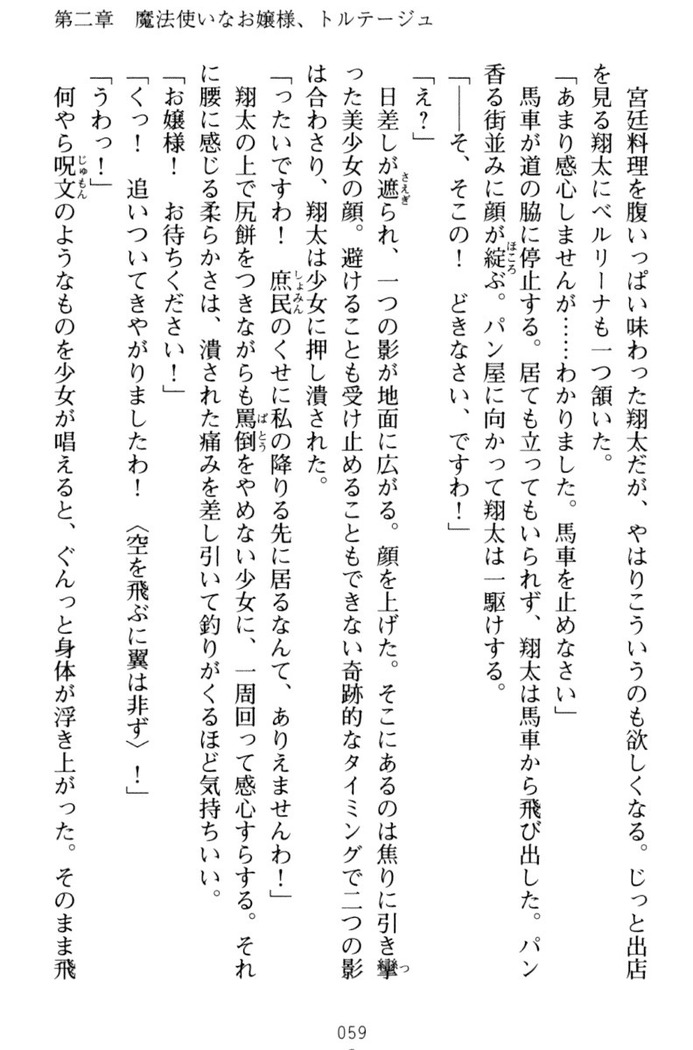 第二章　魔法使いなお嬢様、トルテージュ
　宮廷料理を腹いっぱい味わった翔太だが、やはりこういうのも欲しくなる。じっと出店
を見る翔太にベルリーナも一つ頷いた。
「あまり感心しませんが……わかりました。馬車を止めなさい」
　馬車が道の脇に停止する。居ても立ってもいられず、翔太は馬車から飛び出した。パン
香る街並みに顔が綻ぶ。パン屋に向かって翔太は一駆けする。
「――そ、そこの！　どきなさい、ですわ！」
「え？」
　日差しが遮られ、一つの影が地面に広がる。顔を上げた。そこにあるのは焦りに引き攣
った美少女の顔。避けることも受け止めることもできない奇跡的なタイミングで二つの影
は合わさり、翔太は少女に押し潰された。
「ったいですわ！　庶民のくせに私の降りる先に居るなんて、ありえませんわ！」
　翔太の上で尻餅をつきながらも罵倒をやめない少女に、一周回って感心すらする。それ
に腰に感じる柔らかさは、潰された痛みを差し引いて釣りがくるほど気持ちいい。
「お嬢様！　お待ちください！」
「くっ！　追いついてきやがりましたわ！　〈空を飛ぶに翼は非ず〉！」
「うわっ！」
　何やら呪文のようなものを少女が唱えると、ぐんっと身体が浮き上がった。そのまま飛
059